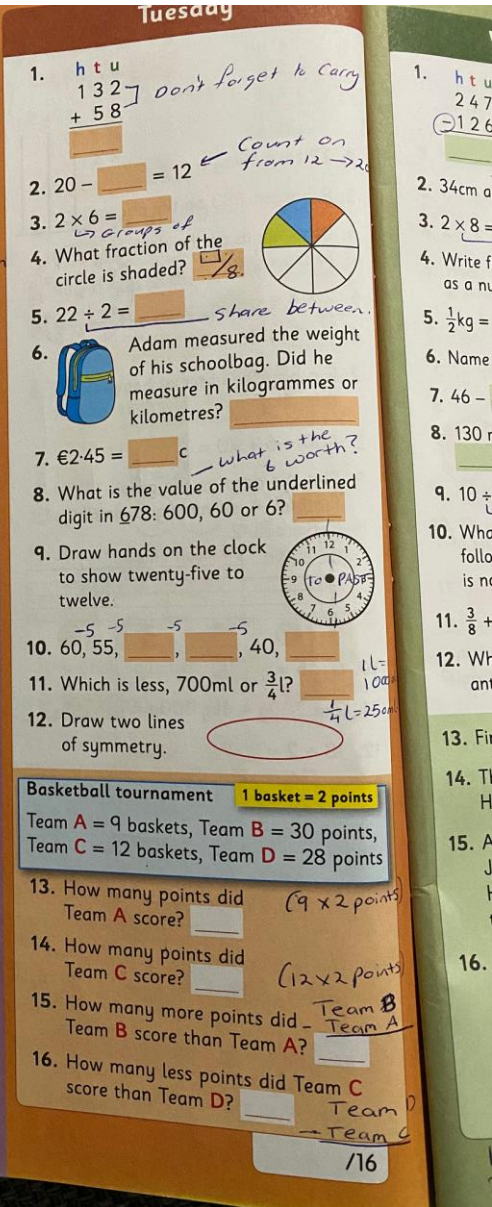 Tuesday
1. h t u
1 3 2
+ 5 8
Don't forget to carry
2. 20 − = 12
Count on
from 12 → 20
3. 2 × 6 =
Groups of
4. What fraction of the
circle is shaded? /8.
5. 22 ÷ 2 =
share between.
6. Adam measured the weight
of his schoolbag. Did he
measure in kilogrammes or
kilometres?
7. €2·45 = c
what is the
6 worth?
8. What is the value of the underlined
digit in 678: 600, 60 or 6?
9. Draw hands on the clock
to show twenty-five to
twelve.
12 1 2 3 4 5 6 7 8 9 10 11
To PAST
-5 -5 -5 -5
10. 60, 55, , , 40,
11. Which is less, 700ml or 3/4l?
1L=
1000
1/4L=250ml
12. Draw two lines
of symmetry.
Basketball tournament 1 basket = 2 points
Team A = 9 baskets, Team B = 30 points,
Team C = 12 baskets, Team D = 28 points
13. How many points did
Team A score?
(9 × 2 points)
14. How many points did
Team C score?
(12×2 points)
15. How many more points did
Team B score than Team A?
Team B
- Team A
16. How many less points did Team C
score than Team D?
Team D
- Team C
/16
1. h t u
2 4 7
− 1 2 6
2. 34cm a
3. 2 × 8 =
4. Write f
as a nu
5. ½kg =
6. Name
7. 46 −
8. 130
9. 10 ÷
10. Who
follo
is no
11. 3/8 +
12. Wh
an
13. Fi
14. Th
H
15. A
J
16.